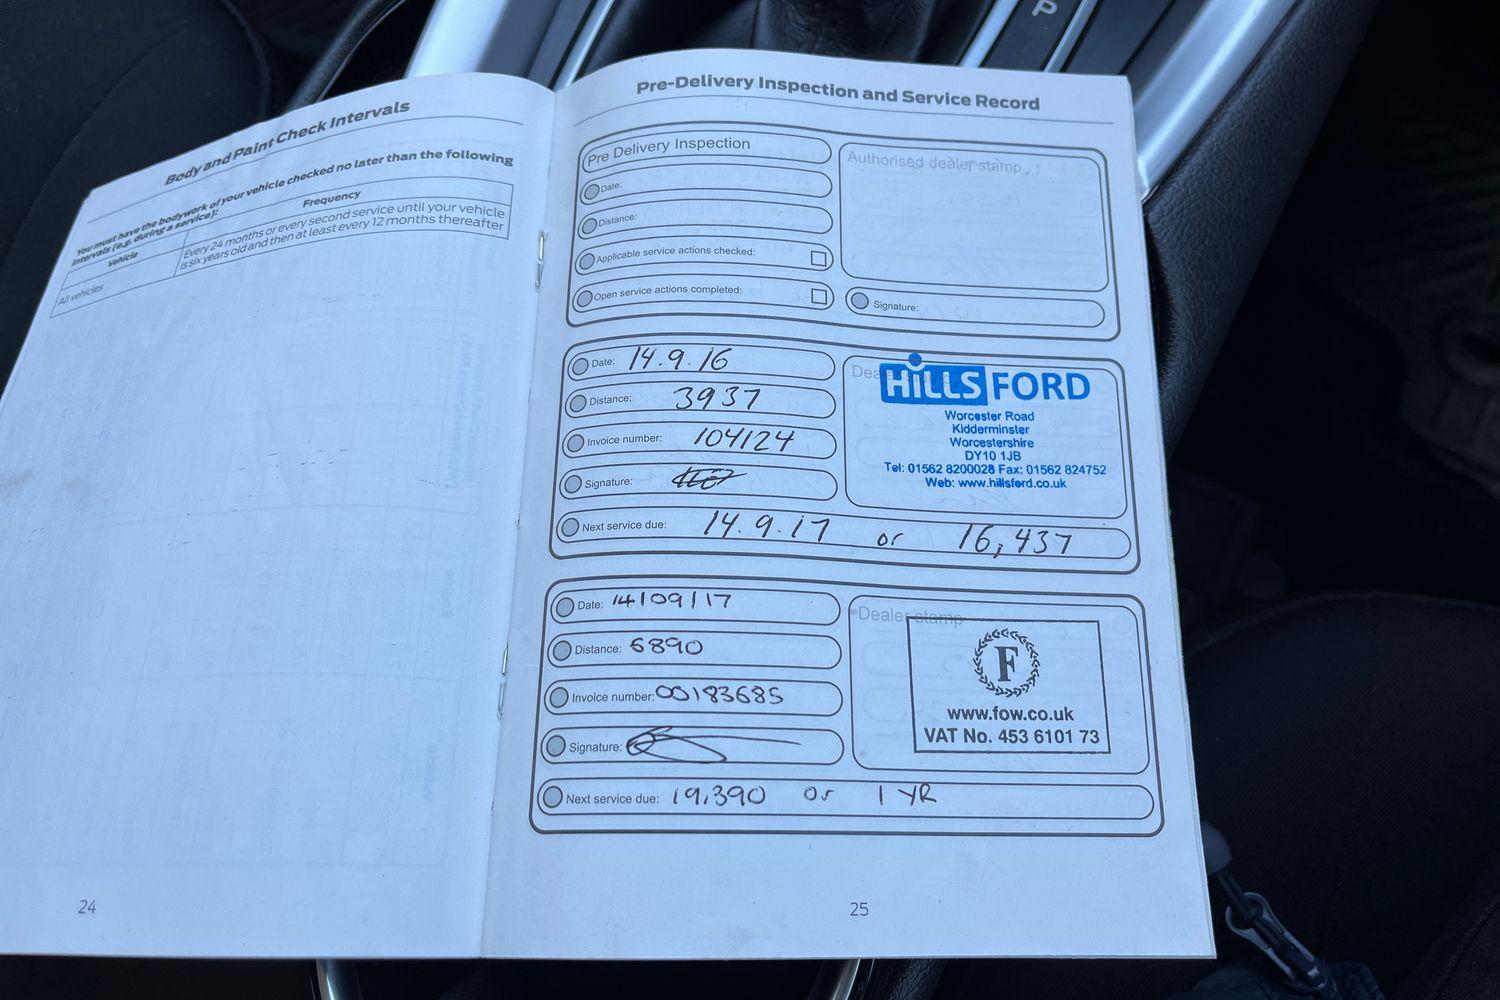 P
Body and Paint Check Intervals
You must have the bodywork of your vehicle checked no later than the following
intervals (e.g. during a service):
Vehicle
Frequency
All vehicles
Every 24 months or every second service until your vehicle
is six years old and then at least every 12 months thereafter
24
Pre-Delivery Inspection and Service Record
Pre Delivery Inspection
Date:
Distance:
Applicable service actions checked:
Open service actions completed:
Authorised dealer stamp
Signature:
Date: 14.9.16
Distance: 3937
Invoice number: 104124
Signature:
Next service due: 14.9.17 or 16,437
Dea
HiLLS FORD
Worcester Road
Kidderminster
Worcestershire
DY10 1JB
Tel: 01562 8200028 Fax: 01562 824752
Web: www.hillsford.co.uk
Date: 14/09/17
Distance: 6890
Invoice number: 00183685
Signature:
Next service due: 19,390 or 1 YR
Dealer stamp
F
www.fow.co.uk
VAT No. 453 6101 73
25